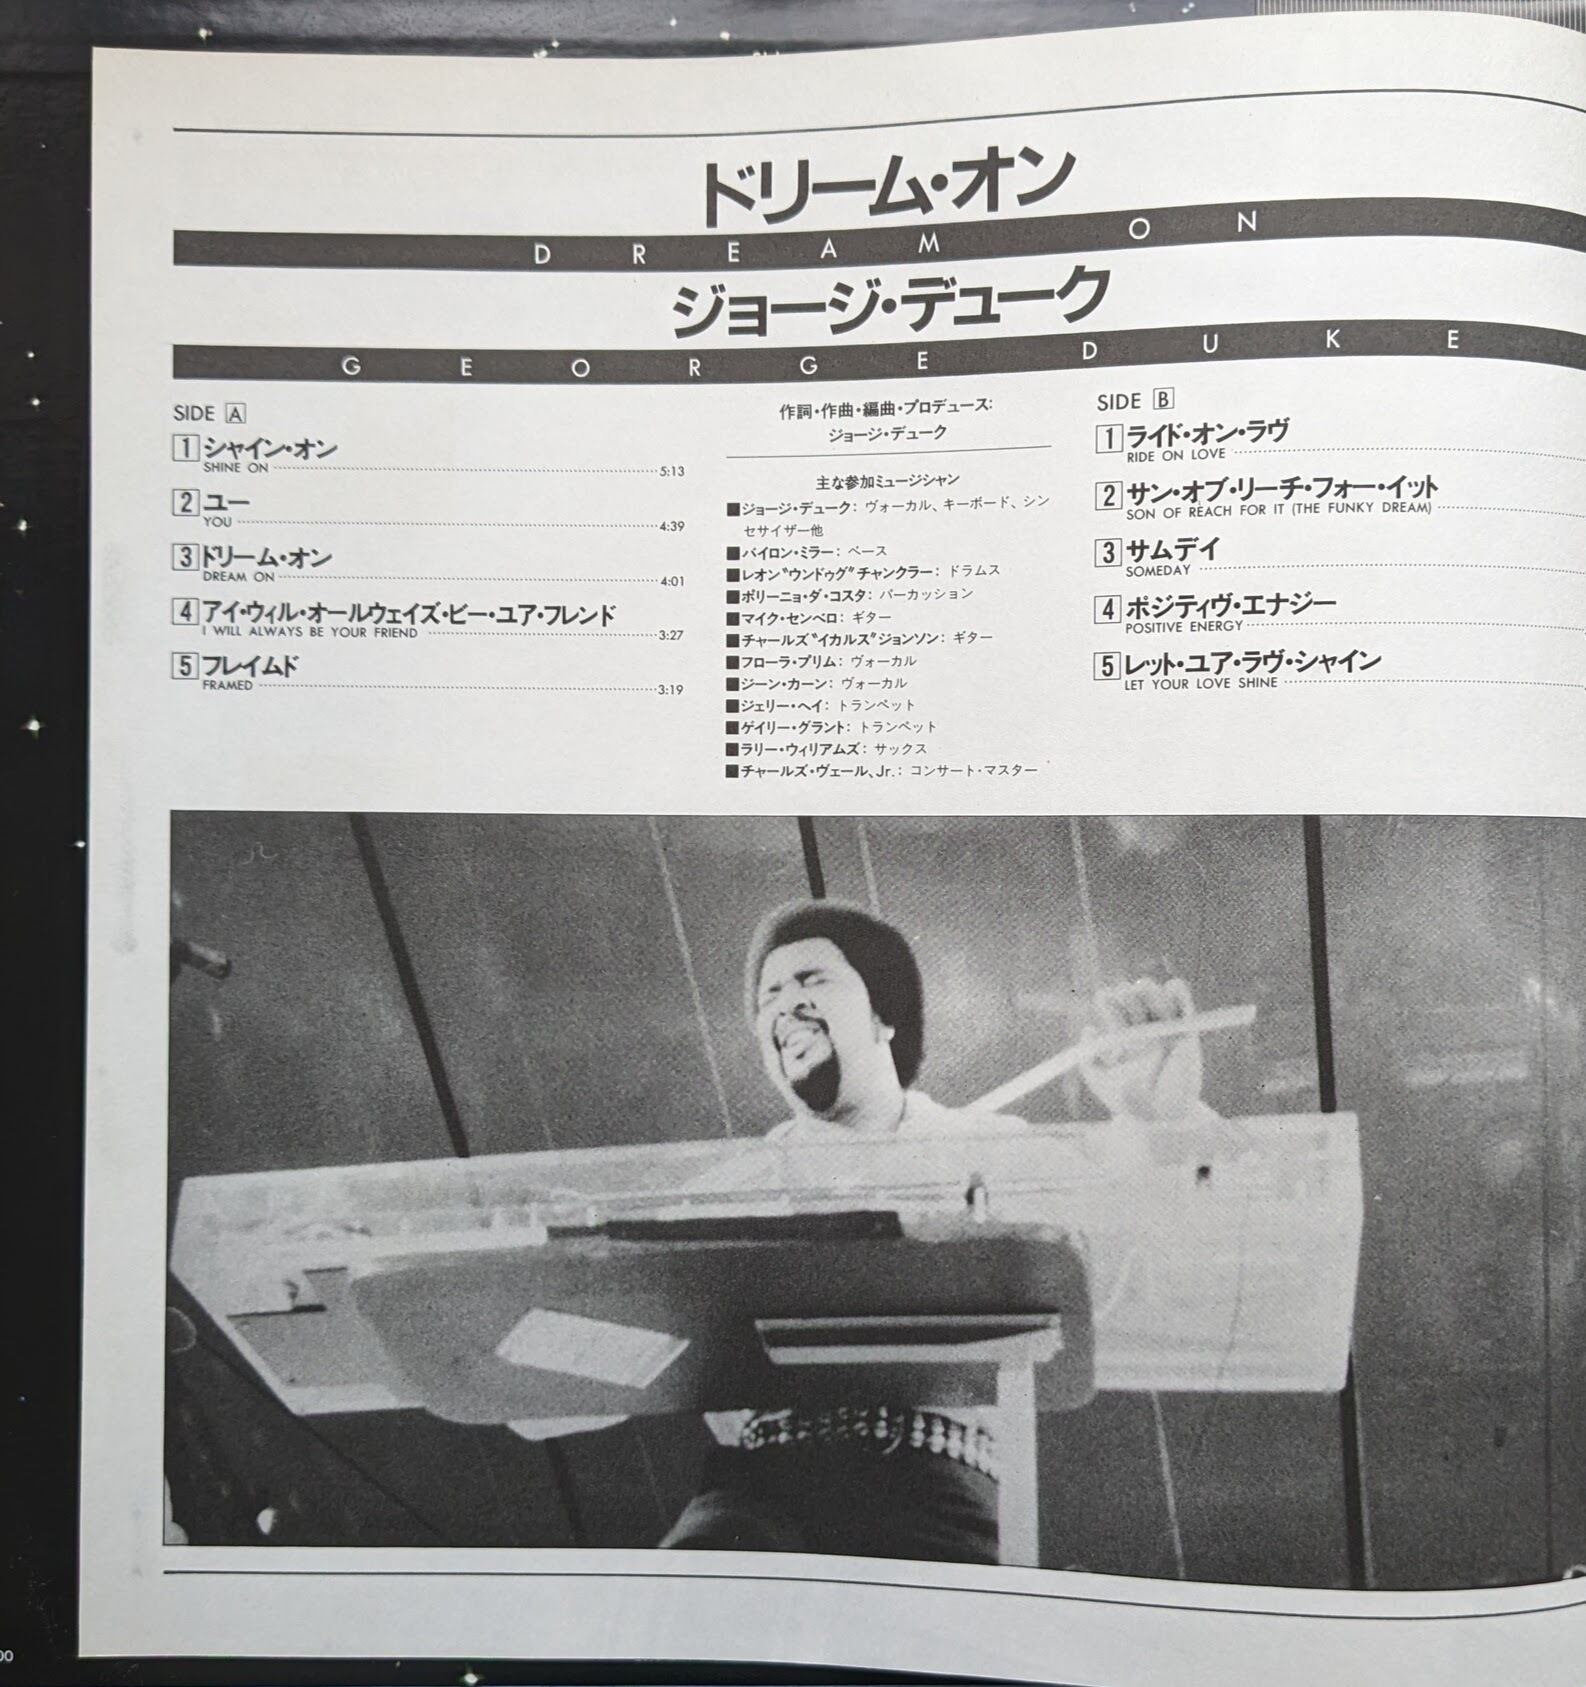 ドリーム・オン
DREAM ON
ジョージ・デューク
GEORGE DUKE
SIDE A
1 シャイン・オン
SHINE ON 5:13
2 ユー
YOU 4:39
3 ドリーム・オン
DREAM ON 4:01
4 アイ・ウィル・オールウェイズ・ビー・ユア・フレンド
I WILL ALWAYS BE YOUR FRIEND 3:27
5 フレイムド
FRAMED 3:19
作詞・作曲・編曲・プロデュース:
ジョージ・デューク
主な参加ミュージシャン
■ジョージ・デューク: ヴォーカル、キーボード、シン
セサイザー他
■バイロン・ミラー: ベース
■レオン“ウンドゥグ”チャンクラー: ドラムス
■ポリーニョ・ダ・コスタ: パーカッション
■マイク・センベロ: ギター
■チャールズ“イカルス”ジョンソン: ギター
■フローラ・プリム: ヴォーカル
■ジーン・カーン: ヴォーカル
■ジェリー・ヘイ: トランペット
■ゲイリー・グラント: トランペット
■ラリー・ウィリアムズ: サックス
■チャールズ・ヴェール、Jr.: コンサート・マスター
SIDE B
1 ライド・オン・ラヴ
RIDE ON LOVE
2 サン・オブ・リーチ・フォー・イット
SON OF REACH FOR IT (THE FUNKY DREAM)
3 サムデイ
SOMEDAY
4 ポジティヴ・エナジー
POSITIVE ENERGY
5 レット・ユア・ラヴ・シャイン
LET YOUR LOVE SHINE